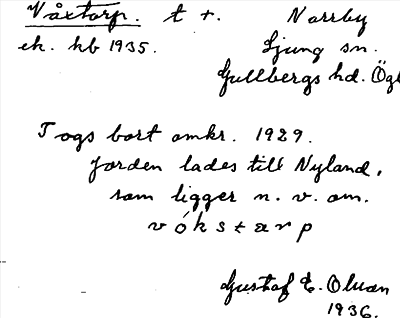 Växtorp. t +. Norrby
ek. hb 1935. Ljung sn.
Gullbergs hd. Ögl
Togs bort omkr. 1929.
Jorden lades till Nyland,
som ligger n. v. om.
vókstarp
Gustaf E. Olson
1936.